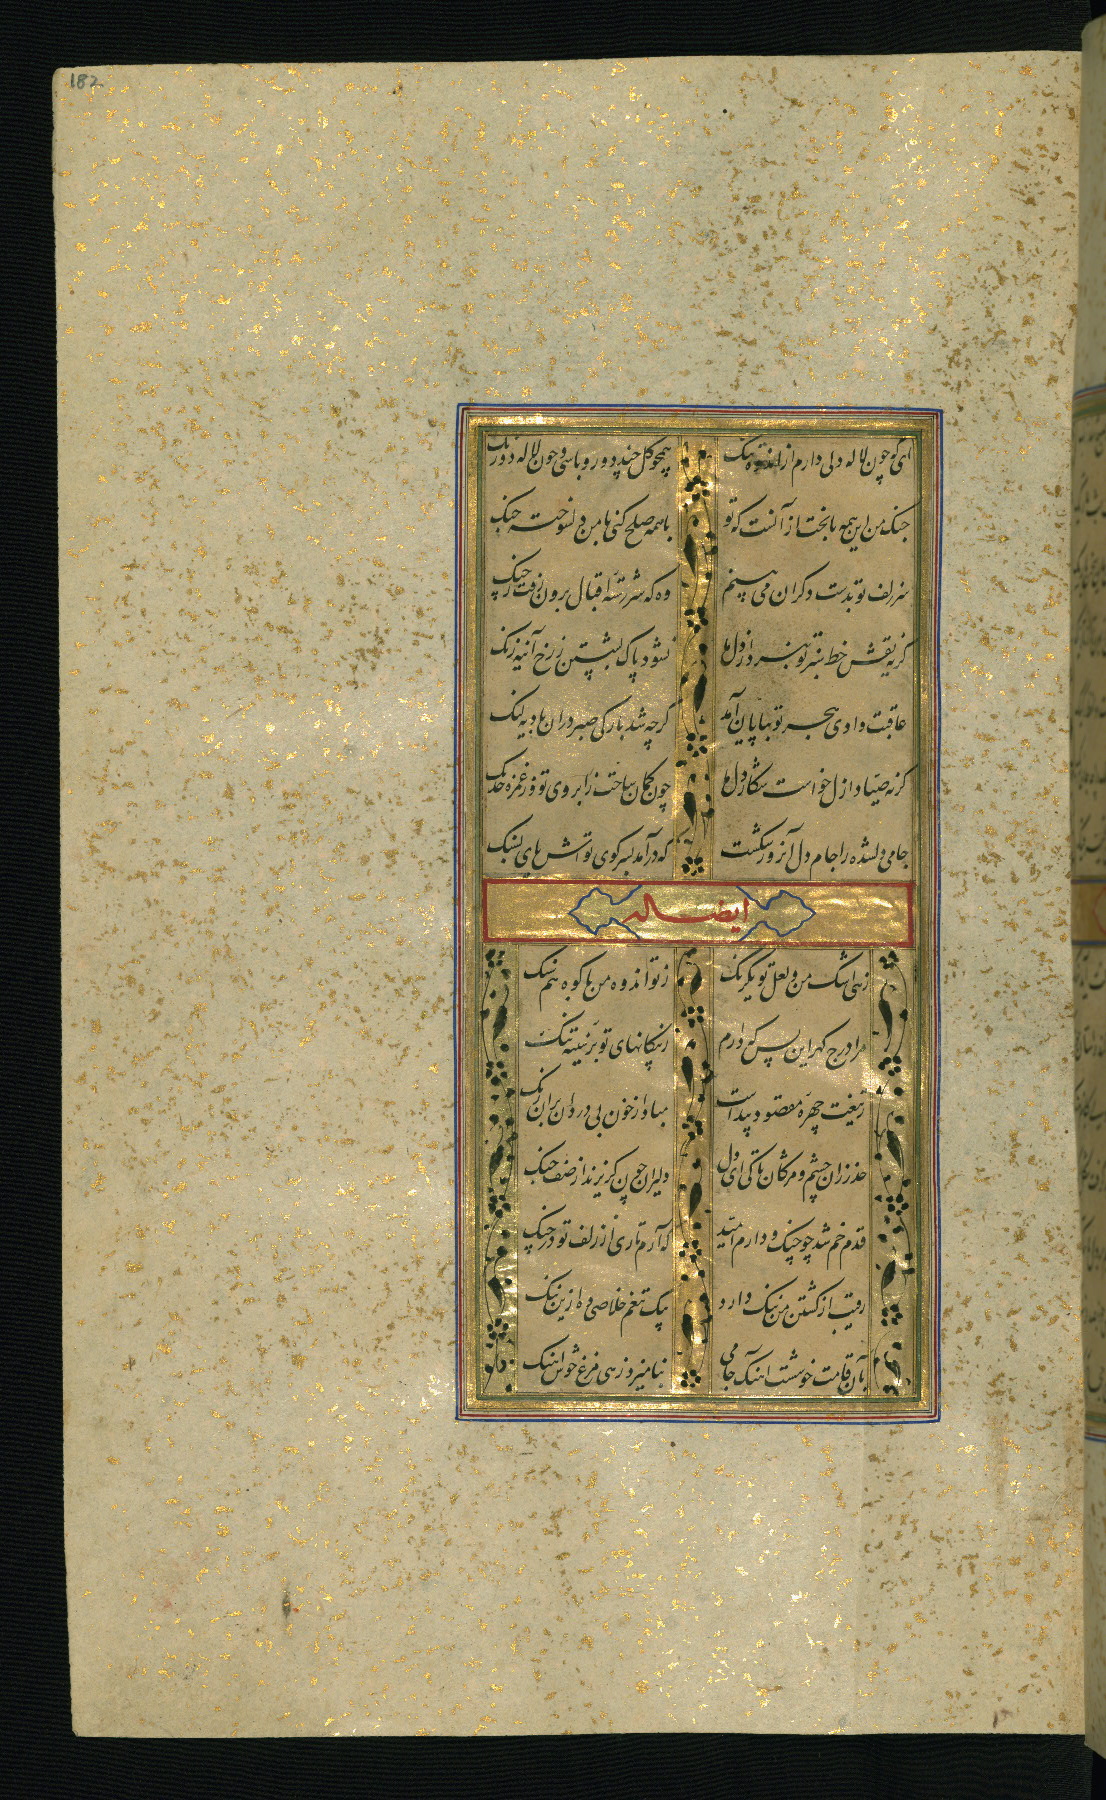 182
ای که چون لاله دلی دارم از اندوه تنگ
همچو گل چند دورو باشی و چون لاله دورنگ
جنک من این همه با بخت از آنست که تو
با همه صلح کنی با من دلسوخته جنک
سر زلف تو بدست دکران می بینم
وه که سررشته اقبال برون رفت ز چنک
گریه نقش خط سبز تو نبرد از دلها
نشود پاک بشستن ز رخ آینه زنک
عاقبت وادی هجر تو بپایان آمد
گرچه شد بارکی صبر در آن بادیه لنک
گرنه صیاد ازل خواست شکار دلها
چون کمان ساخت ز ابروی تو وز غمزه خدنک
جامی دلشده را جام دل آنروز شکست
که درآمد بسر کوی تواش پای بسنک
ایضا له
زهی اشک من و لعل تو یکرنک
ز تو اندوه من با کوه هم سنک
مرا درج گهر این بس که دارم
ز پیکانهای تو بر سینه تنک
ز تیغت چهره مقصود پیداست
مباد از خون بی دردان بر آن زنک
حذر زان چشم و مژکان تا کی ای دل
دلیران چون گریزند از صف جنک
قدم خم شد چو چنک و دارم امید
که آرم تاری از زلف تو در چنک
رقیب از کشتن من ننک دارد
بیک تیغم خلاصی ده ازین ننک
بآن قامت خوشست آهنک جامی
بنامیزد زهی مرغ خوش آهنک